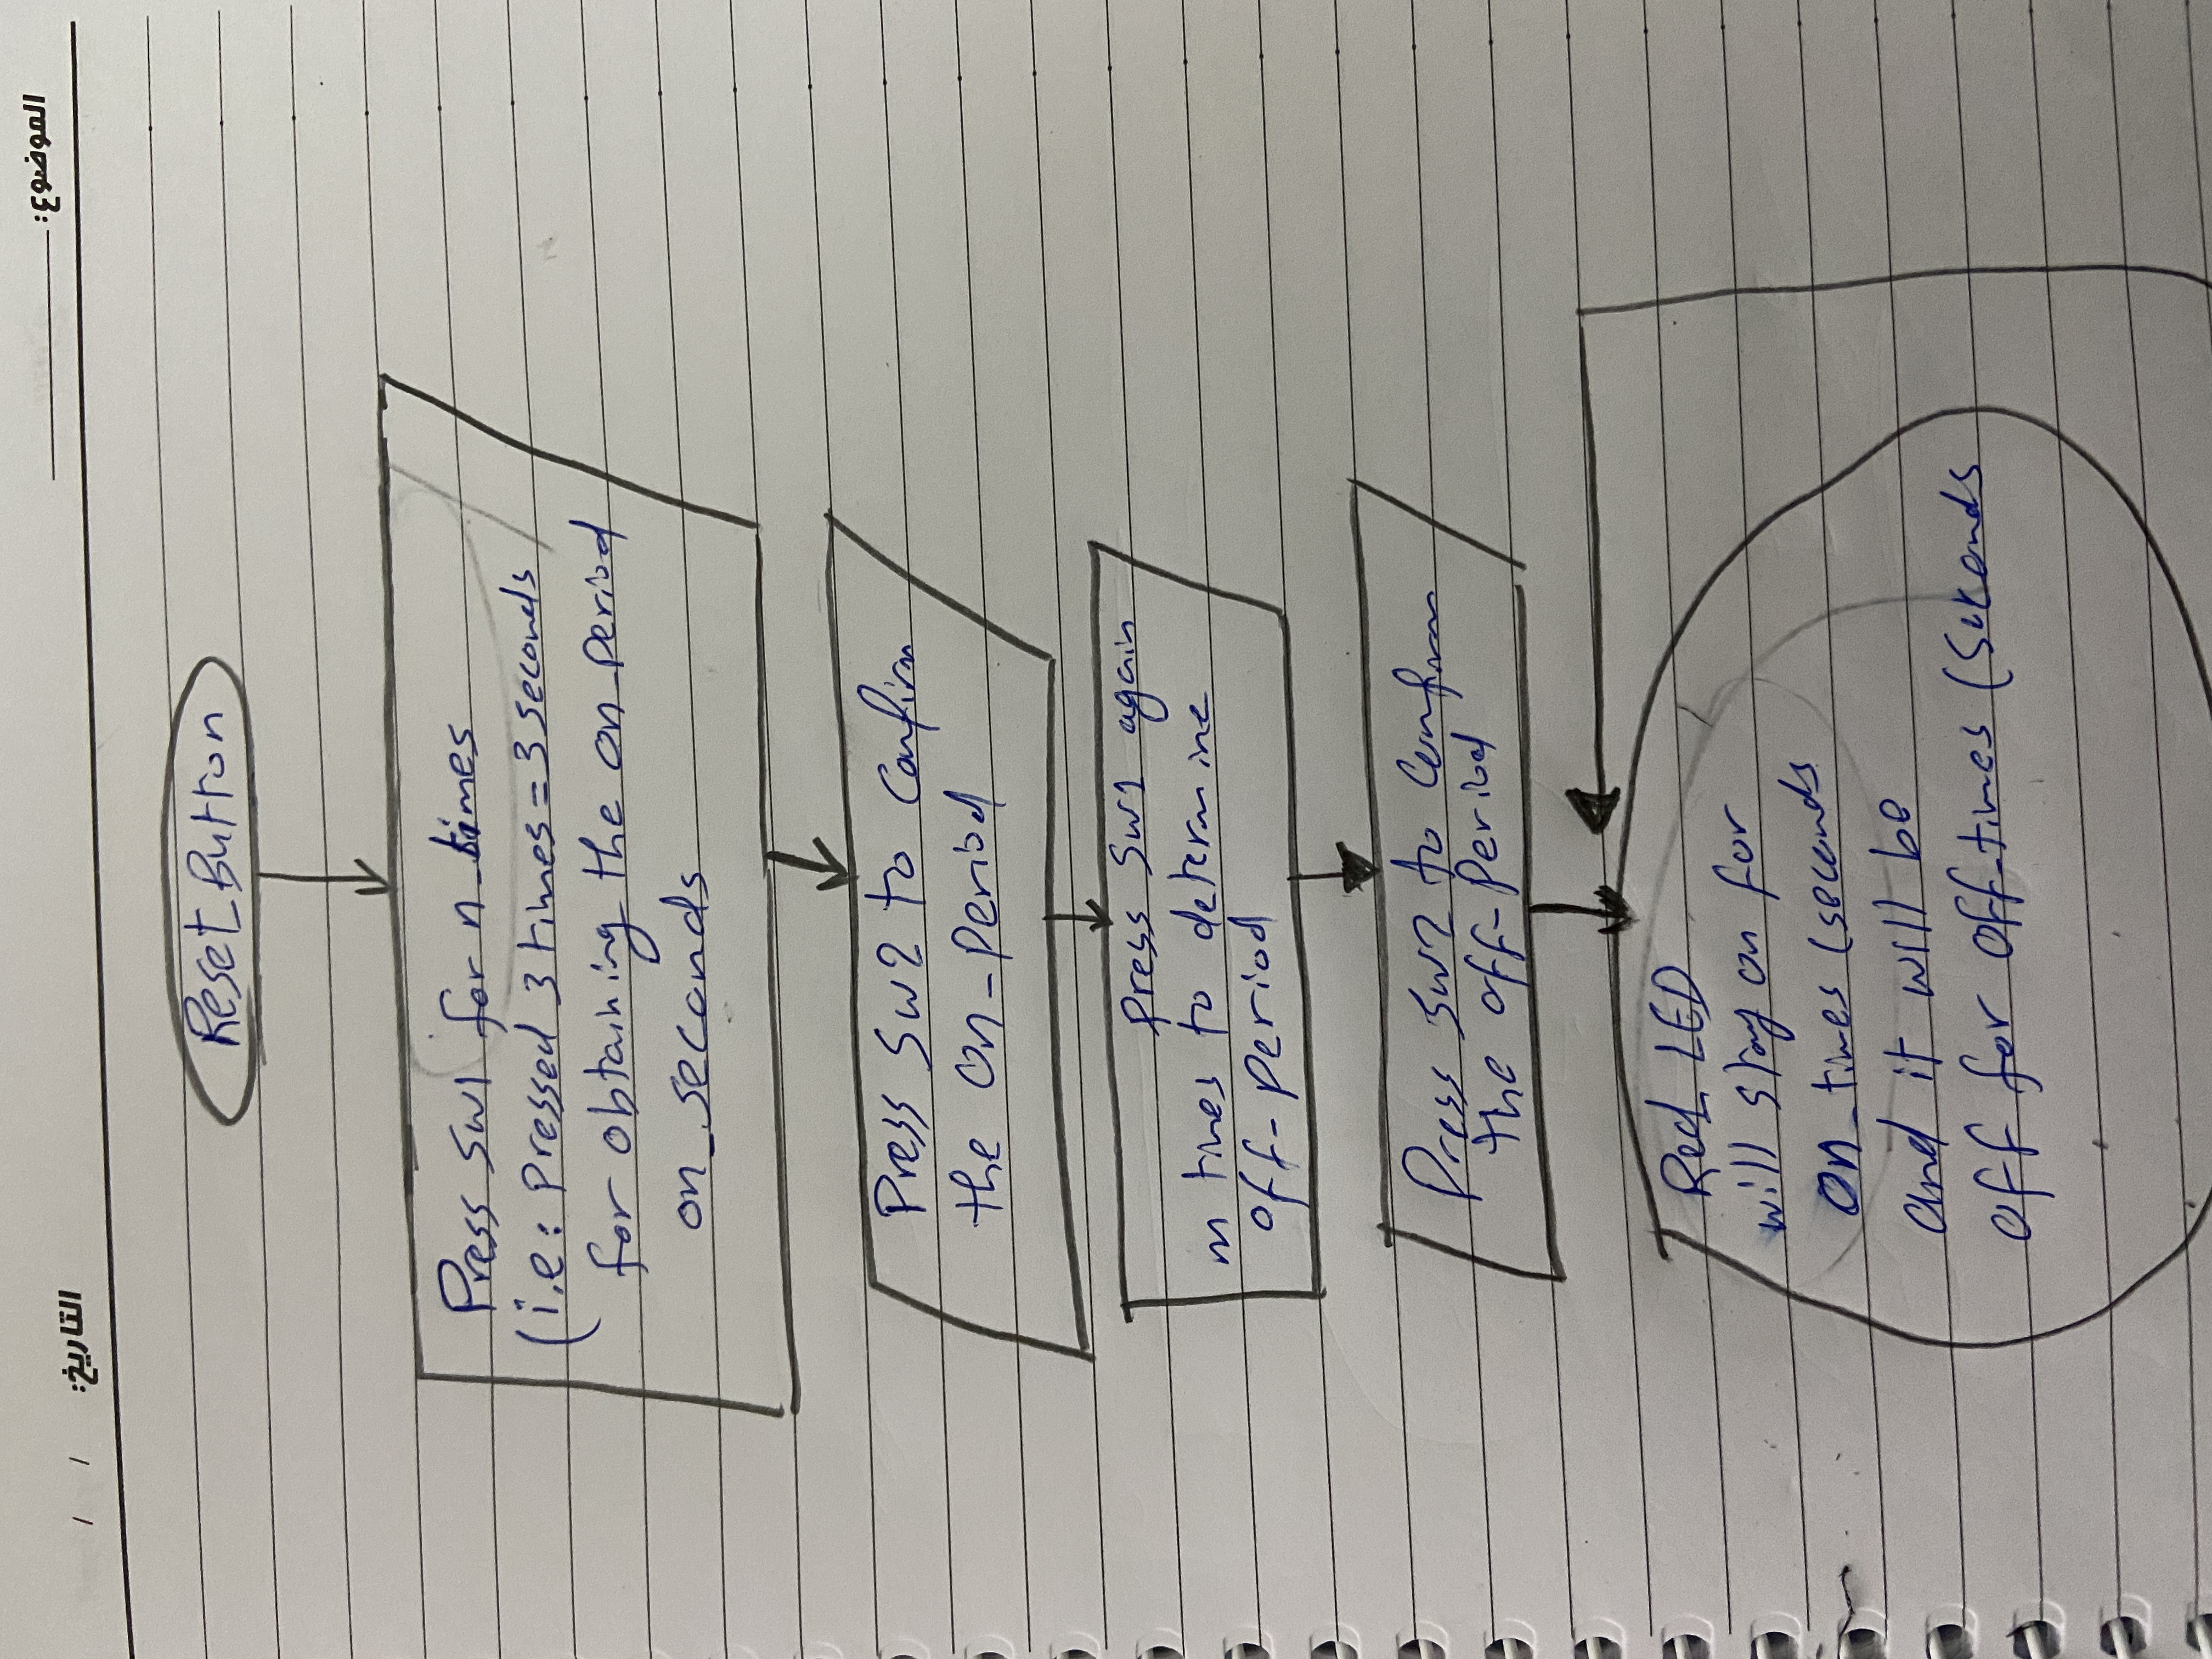 الموضوع:
التاريخ: / /
Reset_Button
Press SW1 for n_times
(i.e: Pressed 3 times = 3 seconds
for obtaining the on_period
on_seconds
Press SW2 to Confirm
the On_period
press SW1 again
m times to determine
off-period
Press SW2 to Confirm
the off-Period
Red LED
will stay on for
On_times (seconds
and it will be
off for off_times (Seconds